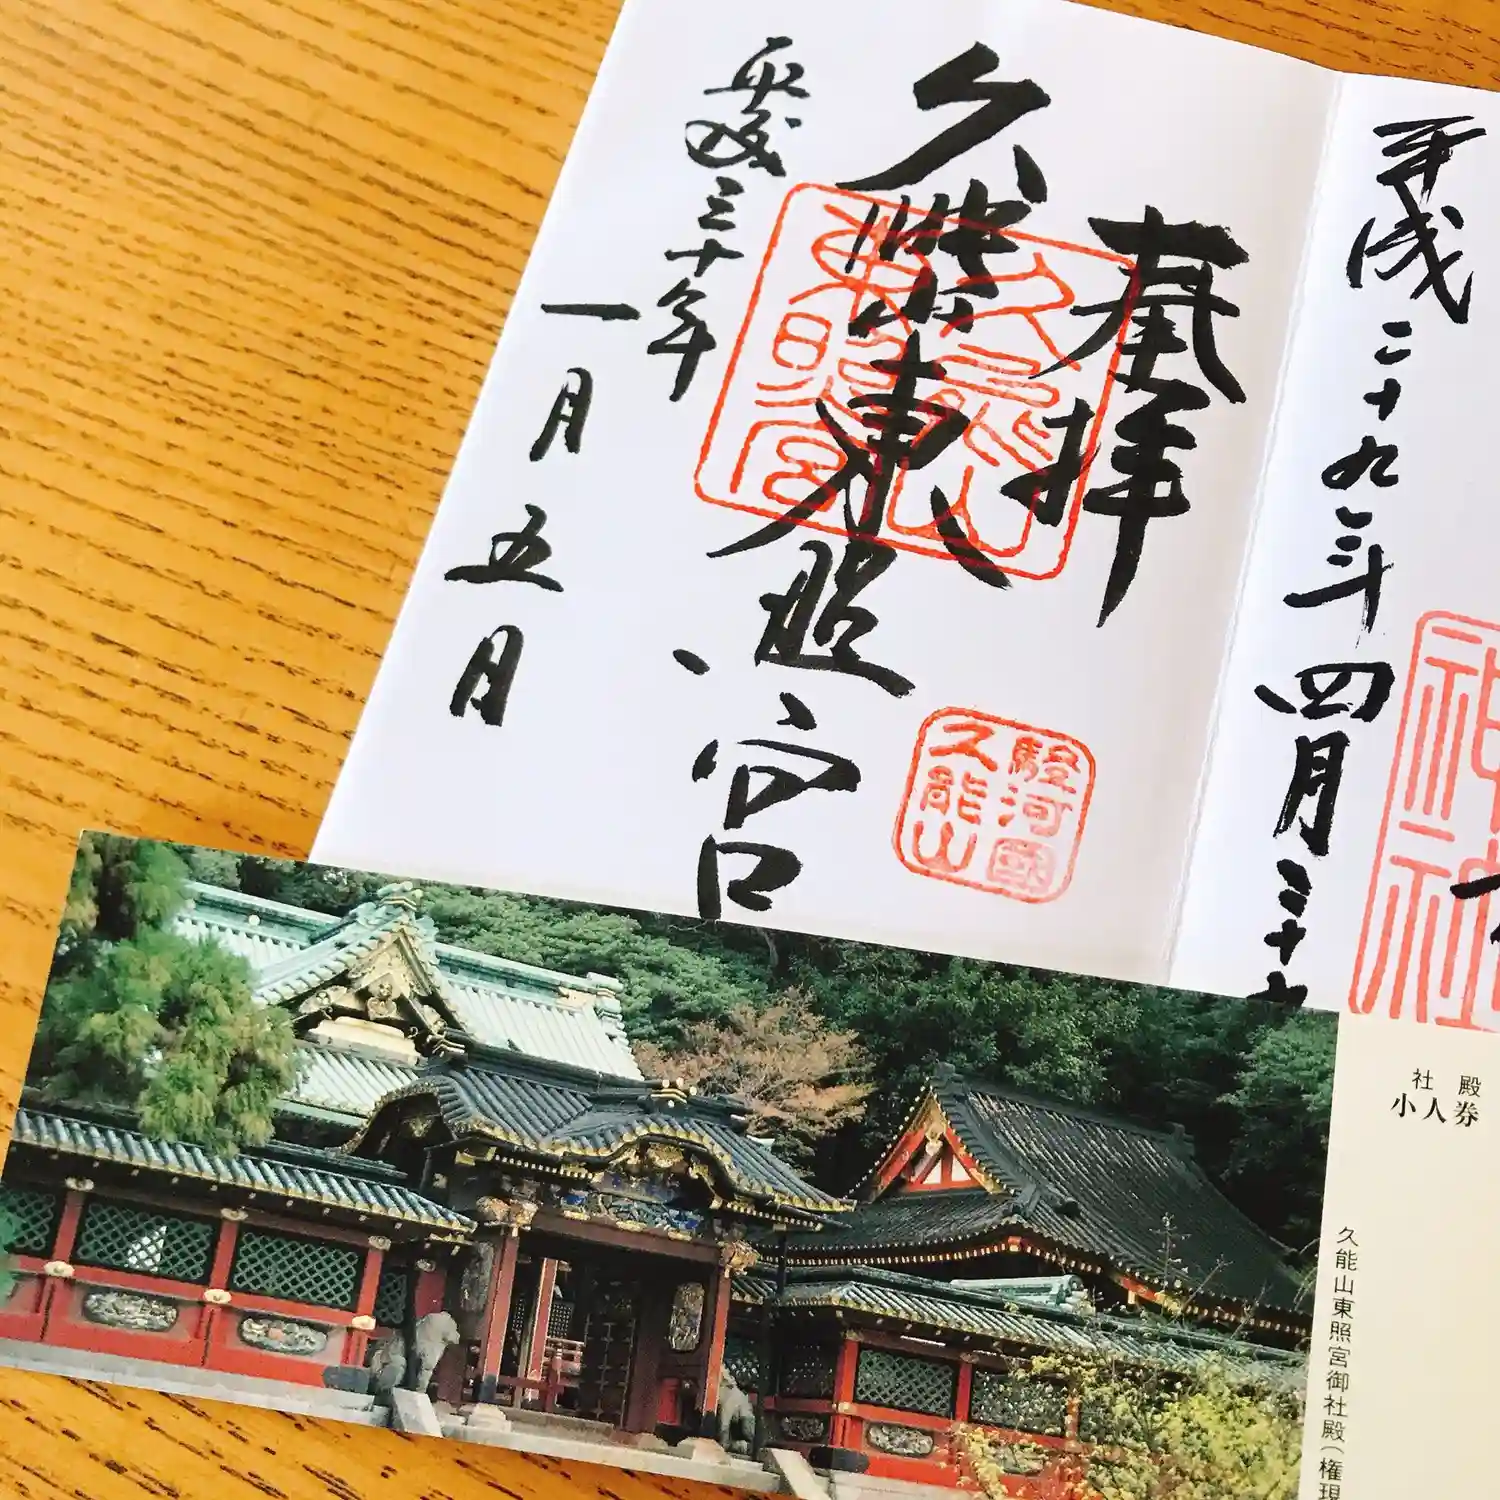 平成二十九年四月二十
神社
奉拝
久能山東照宮
久能山
東照宮
駿河國
久能山
平成三十年
一月五日
社殿
小人券
久能山東照宮御社殿（権現